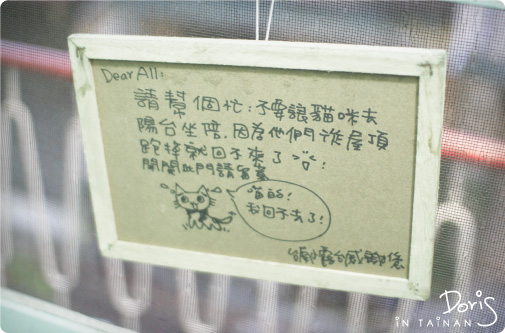 Dear All:
請幫個忙:不要讓貓咪去
陽台坐陪,因為他們從屋頂
跑掉就回不來了
開關此門請留意
喵的!
我回不去了!
Doris
IN TAINAN